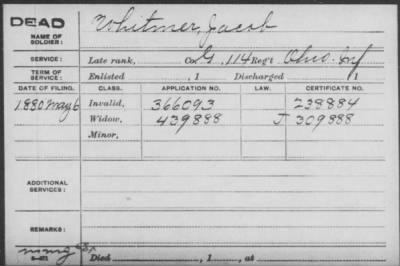 DEAD
NAME OF SOLDIER: Whitmer, Jacob
SERVICE: Late rank, Co. G, 114 Reg't Ohio Inf
TERM OF SERVICE: Enlisted , 1 Discharged , 1
DATE OF FILING. CLASS. APPLICATION NO. LAW. CERTIFICATE NO.
1880 May 6 Invalid, 366093 238884
Widow, 439888 J 309888
Minor,
ADDITIONAL SERVICES:
REMARKS:
Died , 1 , at